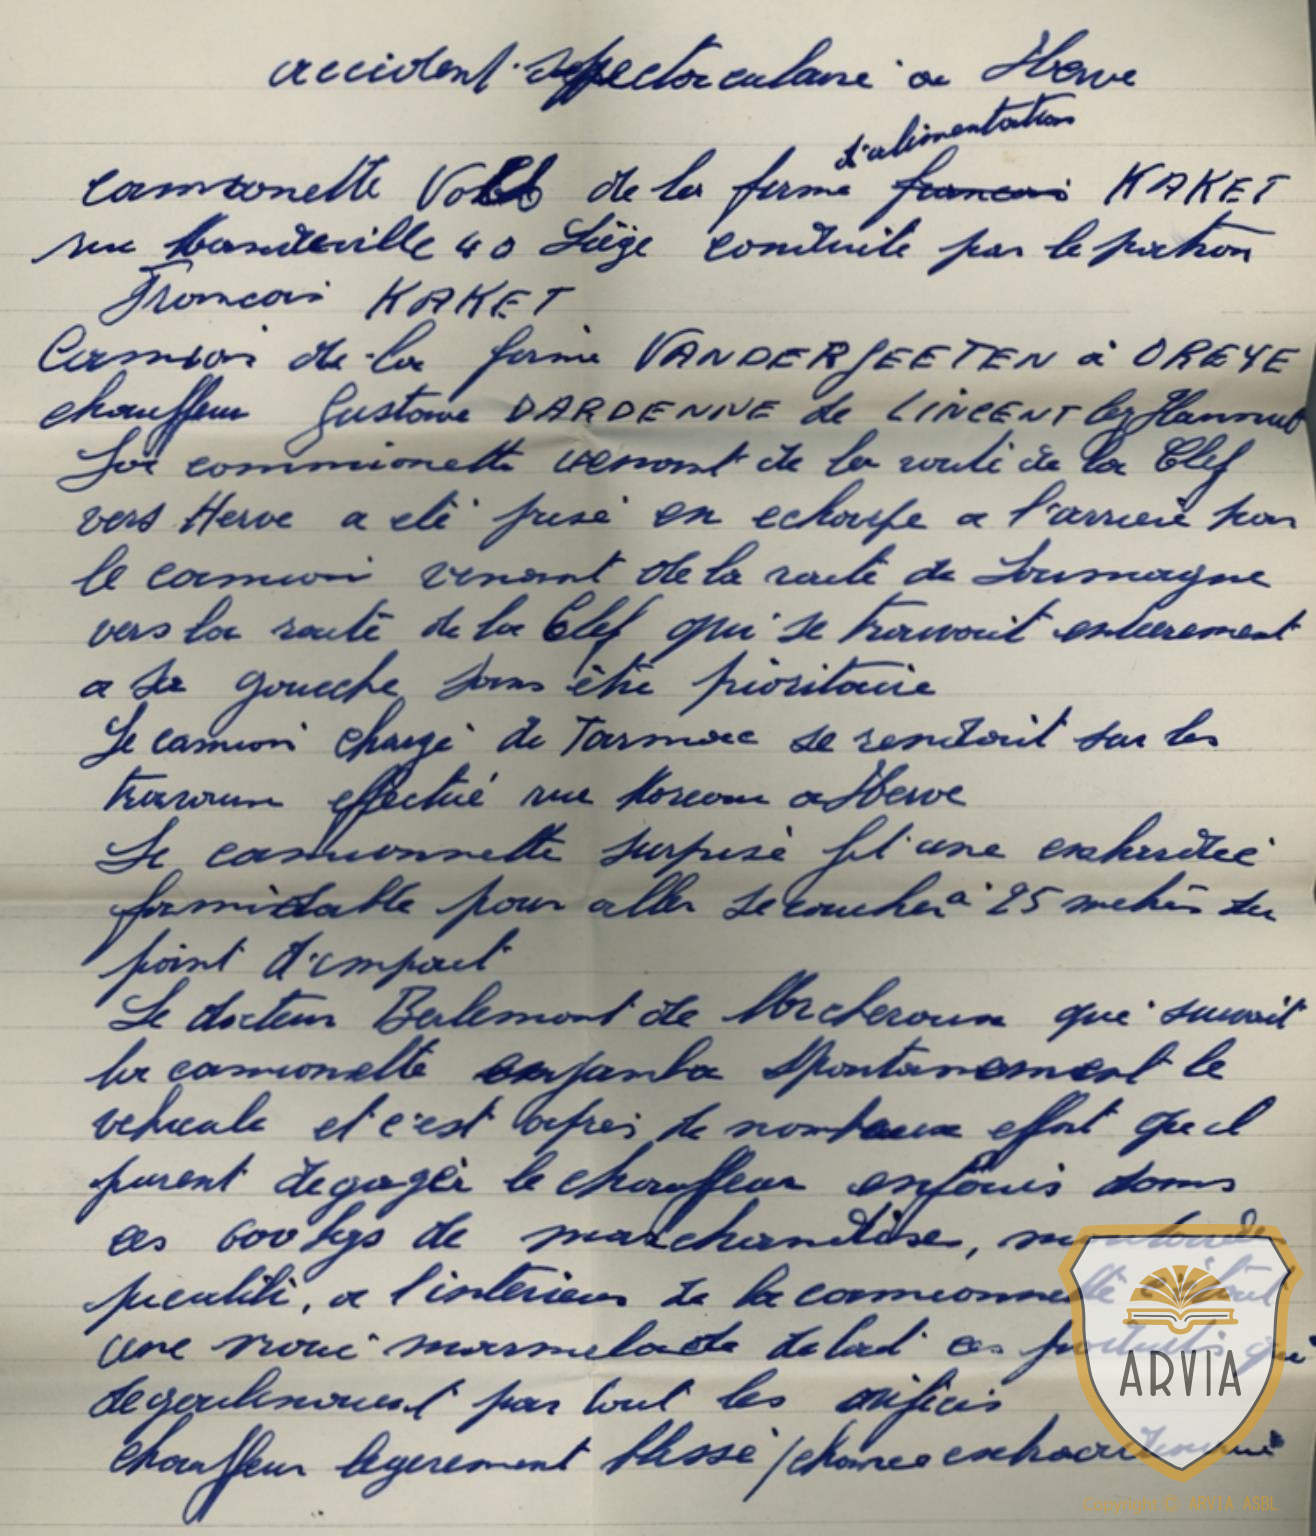 accident spectaculaire a Herve
d'alimentation
camionette de la firme francois KAKET
rue 40 Liège conduite par le patron
Francois KAKET
Camion de la firme VANDERJEETEN à OREYE
chauffeur Gustave DARDENNE de LINCENT lez Hannut
La cammionette venant de la route de la Clef
vers Herve a eté prise en echarfe a l'arriere par
le camion venant de la route de Soumagne
vers la route de la Clef qui se trouvait entierement
a sa gauche sans être prioritaire
Le camion chargé de Tarmac se rendait sur les
travaux effectué rue Moreau a Herve
La camionnette surprise fit une embardée
formidable pour aller se coucher à 25 metres du
point d'impact
Le docteur Berlemont de Micheroux qui suivait
la camionette spontanement le
vehicule et c'est apres de nombreux effort que il
purent degager le chauffeur enfouis dans
ces 600 kgs de marchandises,
, a l'interieur de la camionnette c'était
une vraie marmelade de tout ces produits qui
degoulinaient par tout les orifices
chauffeur legerement blessé / chance extraordinaire
ARVIA
Copyright © ARVIA ASBL